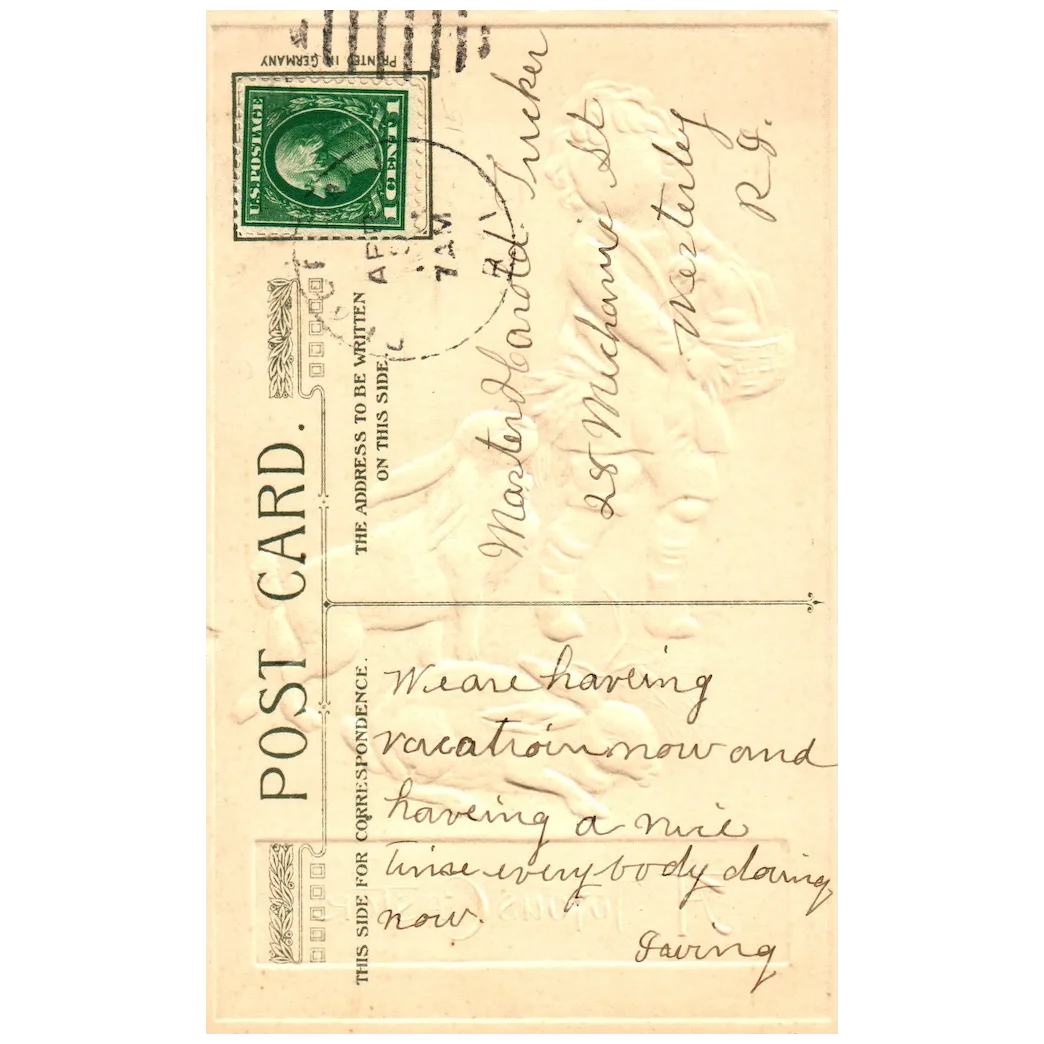 PRINTED IN GERMANY
U.S. POSTAGE
1 CENT 1
APR
7 AM
POST CARD.
THE ADDRESS TO BE WRITTEN
ON THIS SIDE.
THIS SIDE FOR CORRESPONDENCE.
Master Harold Tucker
28 Mechanic St
Westerly
R.I.
We are haveing
vacation now and
haveing a nice
time every body
now.
Irving